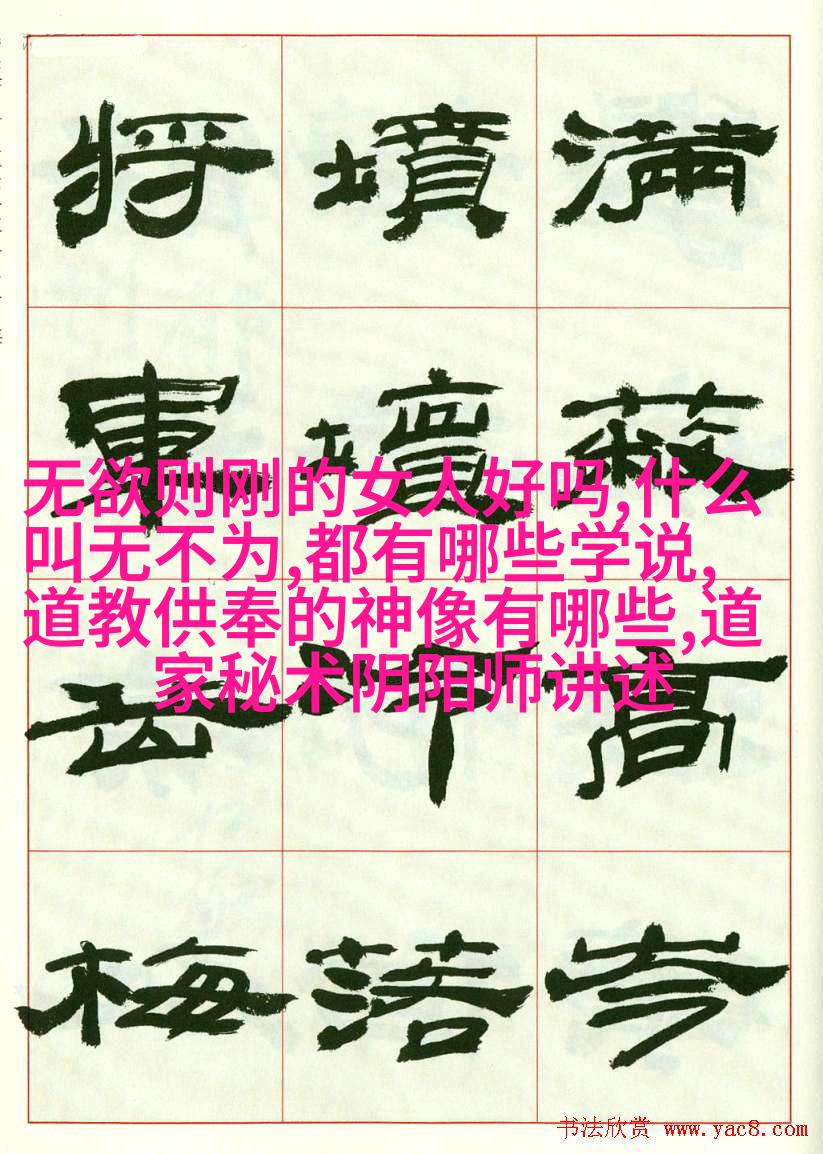 滿蔽高岑
墳落
將軍岳梅
无欲则刚的女人好吗,什么
叫无不为,都有哪些学说,
道教供奉的神像有哪些,道
家秘术阴阳师讲述
书法欣赏 www.yac8.com